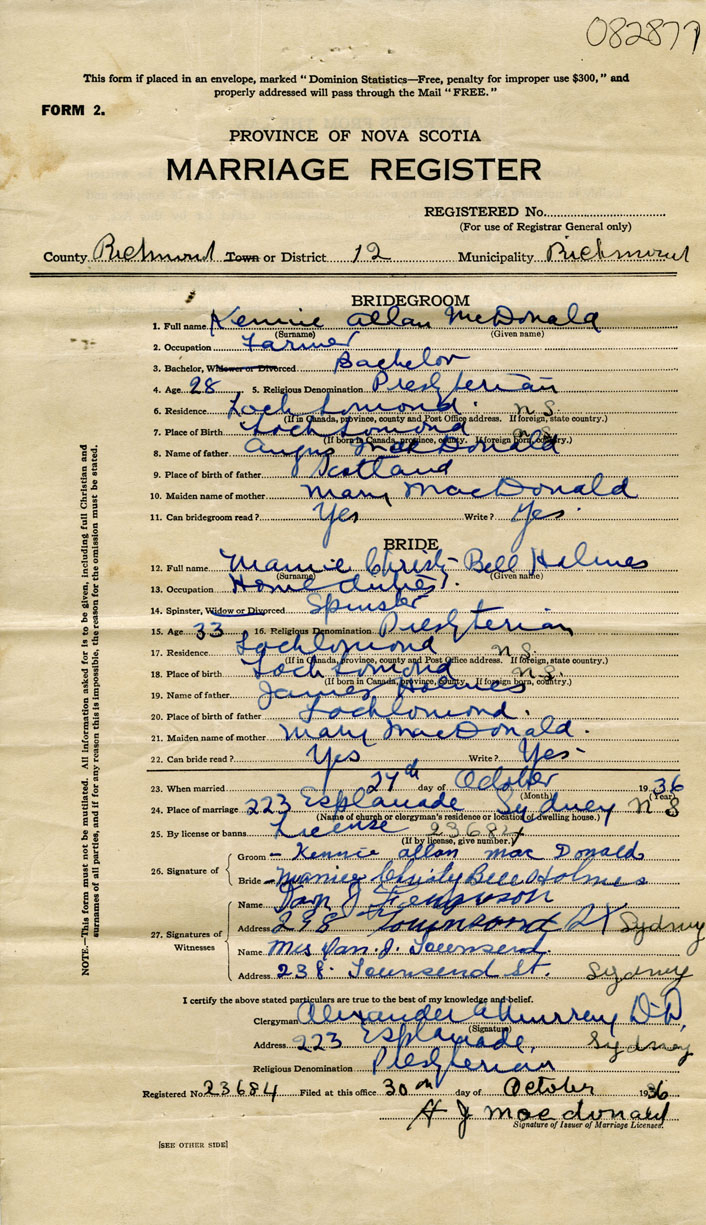 082877
This form if placed in an envelope, marked "Dominion Statistics—Free, penalty for improper use $300," and
properly addressed will pass through the Mail "FREE."
FORM 2.
PROVINCE OF NOVA SCOTIA
MARRIAGE REGISTER
REGISTERED No.
(For use of Registrar General only)
County Richmond Town or District 12 Municipality Richmond
BRIDEGROOM
1. Full name Kennie Allan McDonald
(Surname) (Given name)
2. Occupation Farmer
3. Bachelor, Widower or Divorced Bachelor
4. Age 28 5. Religious Denomination Presbyterian
6. Residence Loch Lomond. N.S.
(If in Canada, province, county and Post Office address. If foreign, state country.)
7. Place of Birth Loch Lomond N.S.
(If born in Canada, province, county. If foreign born, country.)
8. Name of father Angus MacDonald
9. Place of birth of father Scotland
10. Maiden name of mother Mary MacDonald
11. Can bridegroom read? Yes Write? Yes.
BRIDE
12. Full name Mamie Christy Bell Holmes
(Surname) (Given name)
13. Occupation Home duties.
14. Spinster, Widow or Divorced Spinster
15. Age 33 16. Religious Denomination Presbyterian
17. Residence Lochlomond N.S.
(If in Canada, province, county and Post Office address. If foreign, state country.)
18. Place of birth Loch Lomond N.S.
(If born in Canada, province, county. If foreign born, country.)
19. Name of father James Holmes
20. Place of birth of father Lochlomond.
21. Maiden name of mother Mary MacDonald.
22. Can bride read? Yes Write? Yes-
23. When married 27th day of October 1936
(Month) (Year)
24. Place of marriage 223 Esplanade Sydney N S
(Name of church or clergyman's residence or location of dwelling house.)
25. By license or banns License 23684
(If by license, give number.)
26. Signature of
Groom - Kennie Allan Mac Donald
Bride - Mamie Christy Bell Holmes
27. Signatures of Witnesses
Name Dan J Ferguson
Address 238 Townsend St Sydney
Name Mrs Dan. J. Townsend.
Address 238. Townsend St. Sydney
I certify the above stated particulars are true to the best of my knowledge and belief.
Clergyman Alexander A Murray D.D.
(Signature)
Address 223 Esplanade. Sydney
Religious Denomination Presbyterian
Registered No. 23684 Filed at this office 30th day of October 1936
A J Macdonald
Signature of Issuer of Marriage Licenses.
[SEE OTHER SIDE]
NOTE.—This form must not be mutilated. All information asked for is to be given, including full Christian and
surnames of all parties, and if for any reason this is impossible, the reason for the omission must be stated.